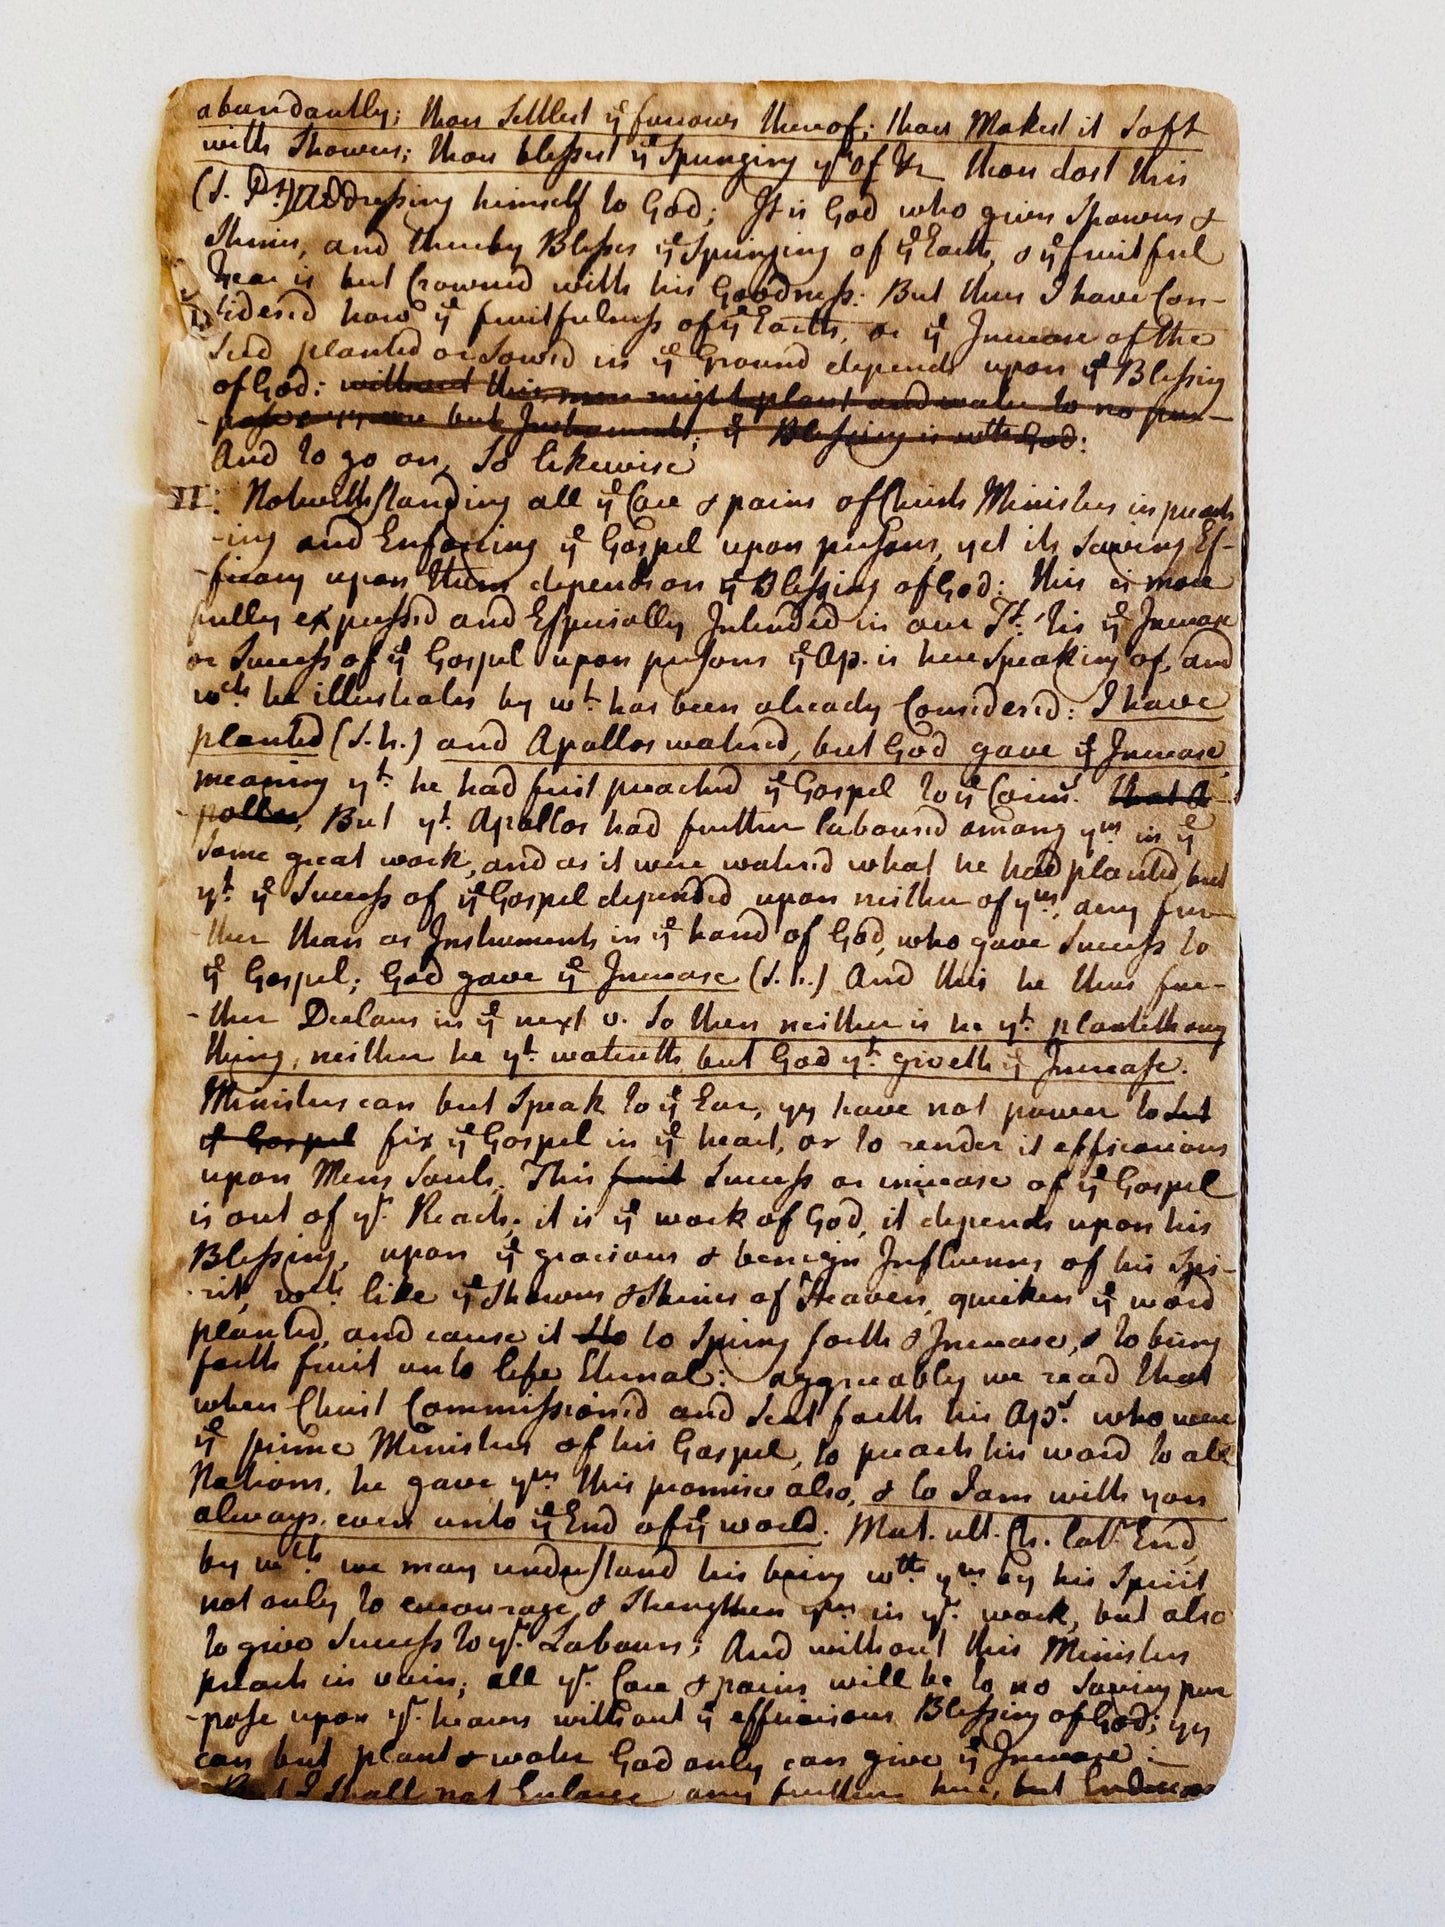 abundantly; thou Settlest yᵉ furrows thereof; thou Makest it Soft
with Showers; thou blessest yᵉ Springing yʳof &c thou dost this
(S. Psᵗ) Addressing himself to God; It is God who gives Showers &
Shines, and thereby Blesses yᵉ Springing of yᵉ Earth, & yᵉ fruitfull
Year is but Crowned with his Goodness: But thus I have Con-
sidered how yᵉ fruitfulness of yᵉ Earth, or yᵉ Increase of the
Seed planted or Sowed in yᵉ Ground depends upon yᵉ Blessing
of God: without this, men might plant and water to no pur-
-pose but Instruments; yᵉ Blessing is with God:
And to go on, So likewise
II: Notwithstanding all yᵉ Care & pains of Christs Ministers in preach
-ing and Enforcing yᵉ Gospel upon persons, yet its Saving Ef-
-ficacy upon them depends on yᵉ Blessing of God: this is more
fully expressed and Especially Intended in our Tᵗ: 'tis yᵉ Increase
or Success of yᵉ Gospel upon persons yᵉ Ap. is here Speaking of, and
wᶜʰ he illustrates by wᵗ has been already Considered: I have
planted (S. h.) and Apollos watered, but God gave yᵉ Increase,
meaning yᵗ he had first preached yᵉ Gospel to yᵉ Corinˢ. that A-
-pollos, But yᵗ Apollos had further laboured among yᵐ in yᵉ
Same great work, and as it were watered what he had planted, but
yᵗ yᵉ Success of yᵉ Gospel depended upon neither of yᵐ, any fur-
-ther than as Instruments in yᵉ hand of God, who gave Success to
yᵉ Gospel; God gave yᵉ Increase (S. h.) And this he thus fur-
-ther Declares in yᵉ next v. So then neither is he yᵗ planteth any
thing, neither he yᵗ watereth but God yᵗ giveth yᵉ Increase.
Ministers can but Speak to yᵉ Ear, yy have not power to Set
yᵉ Gospel fix yᵉ Gospel in yᵉ heart, or to render it efficacious
upon Mens Souls. This fruit Success or increase of yᵉ Gospel
is out of yʳ Reach; it is yᵉ work of God, it depends upon his
Blessing, upon yᵉ gracious & benign Influences of his Spi-
-rit, wᶜʰ like yᵉ Showers & Shines of Heaven, quicken yᵉ word
planted, and cause it to Spring forth & Increase, & to bring
forth fruit unto life Eternal: aggreeably we read that
when Christ Commissioned and Sent forth his Apˢ. who were
yᵉ prime Ministers of his Gospel, to preach his word to all
Nations, he gave yᵐ this promise also, & lo I am with you
always, even unto yᵉ End of yᵉ world. Mat. ult. Ch. latʳ End,
by wᶜʰ we may understand his being wᵗʰ yᵐ by his Spirit
not only to encourage & Strengthen yᵐ in yʳ work, but also
to give Success to yʳ Labours; And without this Ministers
preach in vain; all yʳ Care & pains will be to no Saving pur
-pose upon yʳ hearers without yᵉ efficacious Blessing of God; yy
can but plant & water God only can give yᵉ Increase:
But I Shall not Enlarge any further here, but Endeavor